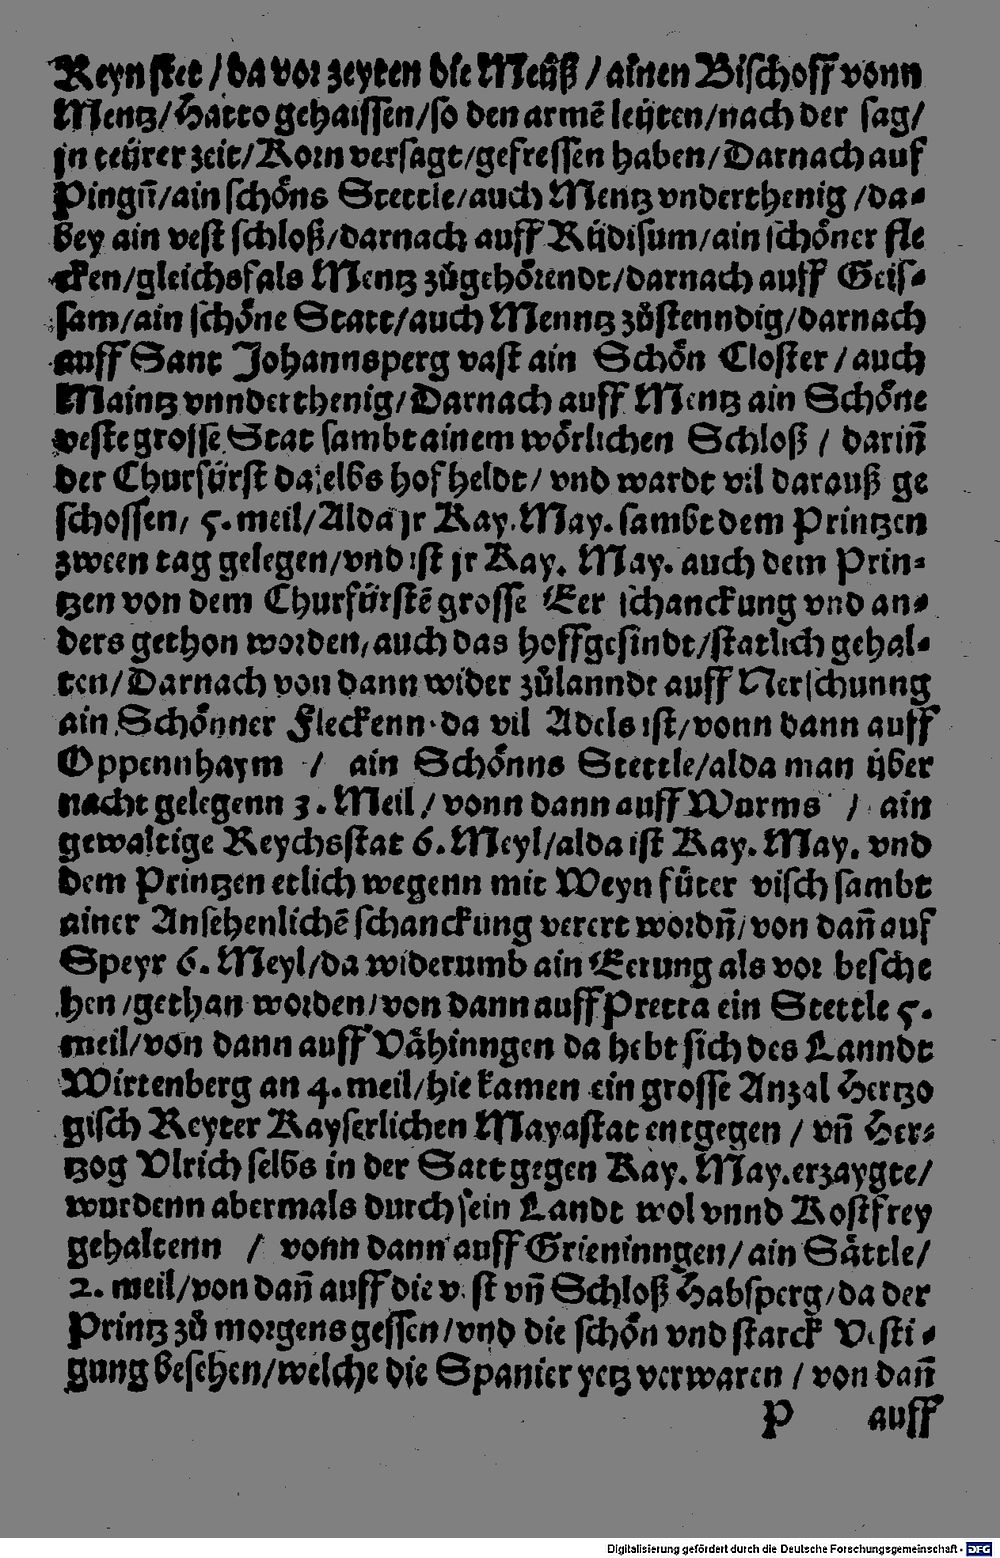 Reyn stet / da vor zeyten die Meüß / ainen Bischoff vonn
Mentz/Hatto gehaissen/so den armē leüten/nach der sag/
jn teürer zeit/Korn versagt/gefressen haben/Darnach auf
Pingn̄/ain schöns Stettle/auch Mentz vnderthenig /da-
bey ain vest schloß/darnach auff Rüdisum/ain schöner fle
cken/gleichsfals Mentz zůgehörendt/darnach auff Geis-
sam/ain schöne Statt/auch Menntz zůstenndig/darnach
auff Sant Johannsperg vast ain Schön Closter / auch
Maintz vnnderthenig/Darnach auff Mentz ain Schöne
veste grosse Stat sambt ainem wörlichen Schloß / darin̄
der Churfürst daselbs hof heldt/ vnd wardt vil darauß ge
schossen/ 5. meil/Alda jr Kay. May. sambt dem Printzen
zween tag gelegen/vnd ist jr Kay. May. auch dem Prin-
tzen von dem Churfürstē grosse Eer schanckung vnd an-
ders gethon worden/auch das hoffgesindt/statlich gehal-
ten/Darnach von dann wider zůlanndt auff Nerschunng
ain Schönner Fleckenn da vil Adels ist/vonn dann auff
Oppennhaym / ain Schönns Stettle/alda man über
nacht gelegenn 3. Meil / vonn dann auff Wurms / ain
gewaltige Reychsstat 6. Meyl/alda ist Kay. May. vnd
dem Printzen etlich wegenn mit Weyn füter visch sambt
ainer Ansehenlichē schanckung verert wordn̄/von dan̄ auf
Speyr 6. Meyl/da widerumb ain Eerung als vor besche
hen /gethan worden/von dann auff Pretta ein Stettle 5.
meil/von dann auff Vähinngen da hebt sich des Lanndt
Wirtenberg an 4. meil/hie kamen ein grosse Anzal Hertzo
gisch Reyter Kayserlichen Mayastat entgegen / vn̄ Her-
tzog Vlrich selbs in der Satt gegen Kay. May. erzaygte/
wurdenn abermals durch sein Landt wol vnnd Kostfrey
gehaltenn / vonn dann auff Grieninngen/ain Sättle/
2. meil/von dan̄ auff die vest vn̄ Schloß Habsperg/da der
Printz zů morgens gessen/vnd die schön vnd starck Vesti-
gung besehen/welche die Spanier yetz verwaren / von dan̄
P auff
Digitalisierung gefördert durch die Deutsche Forschungsgemeinschaft - DFG